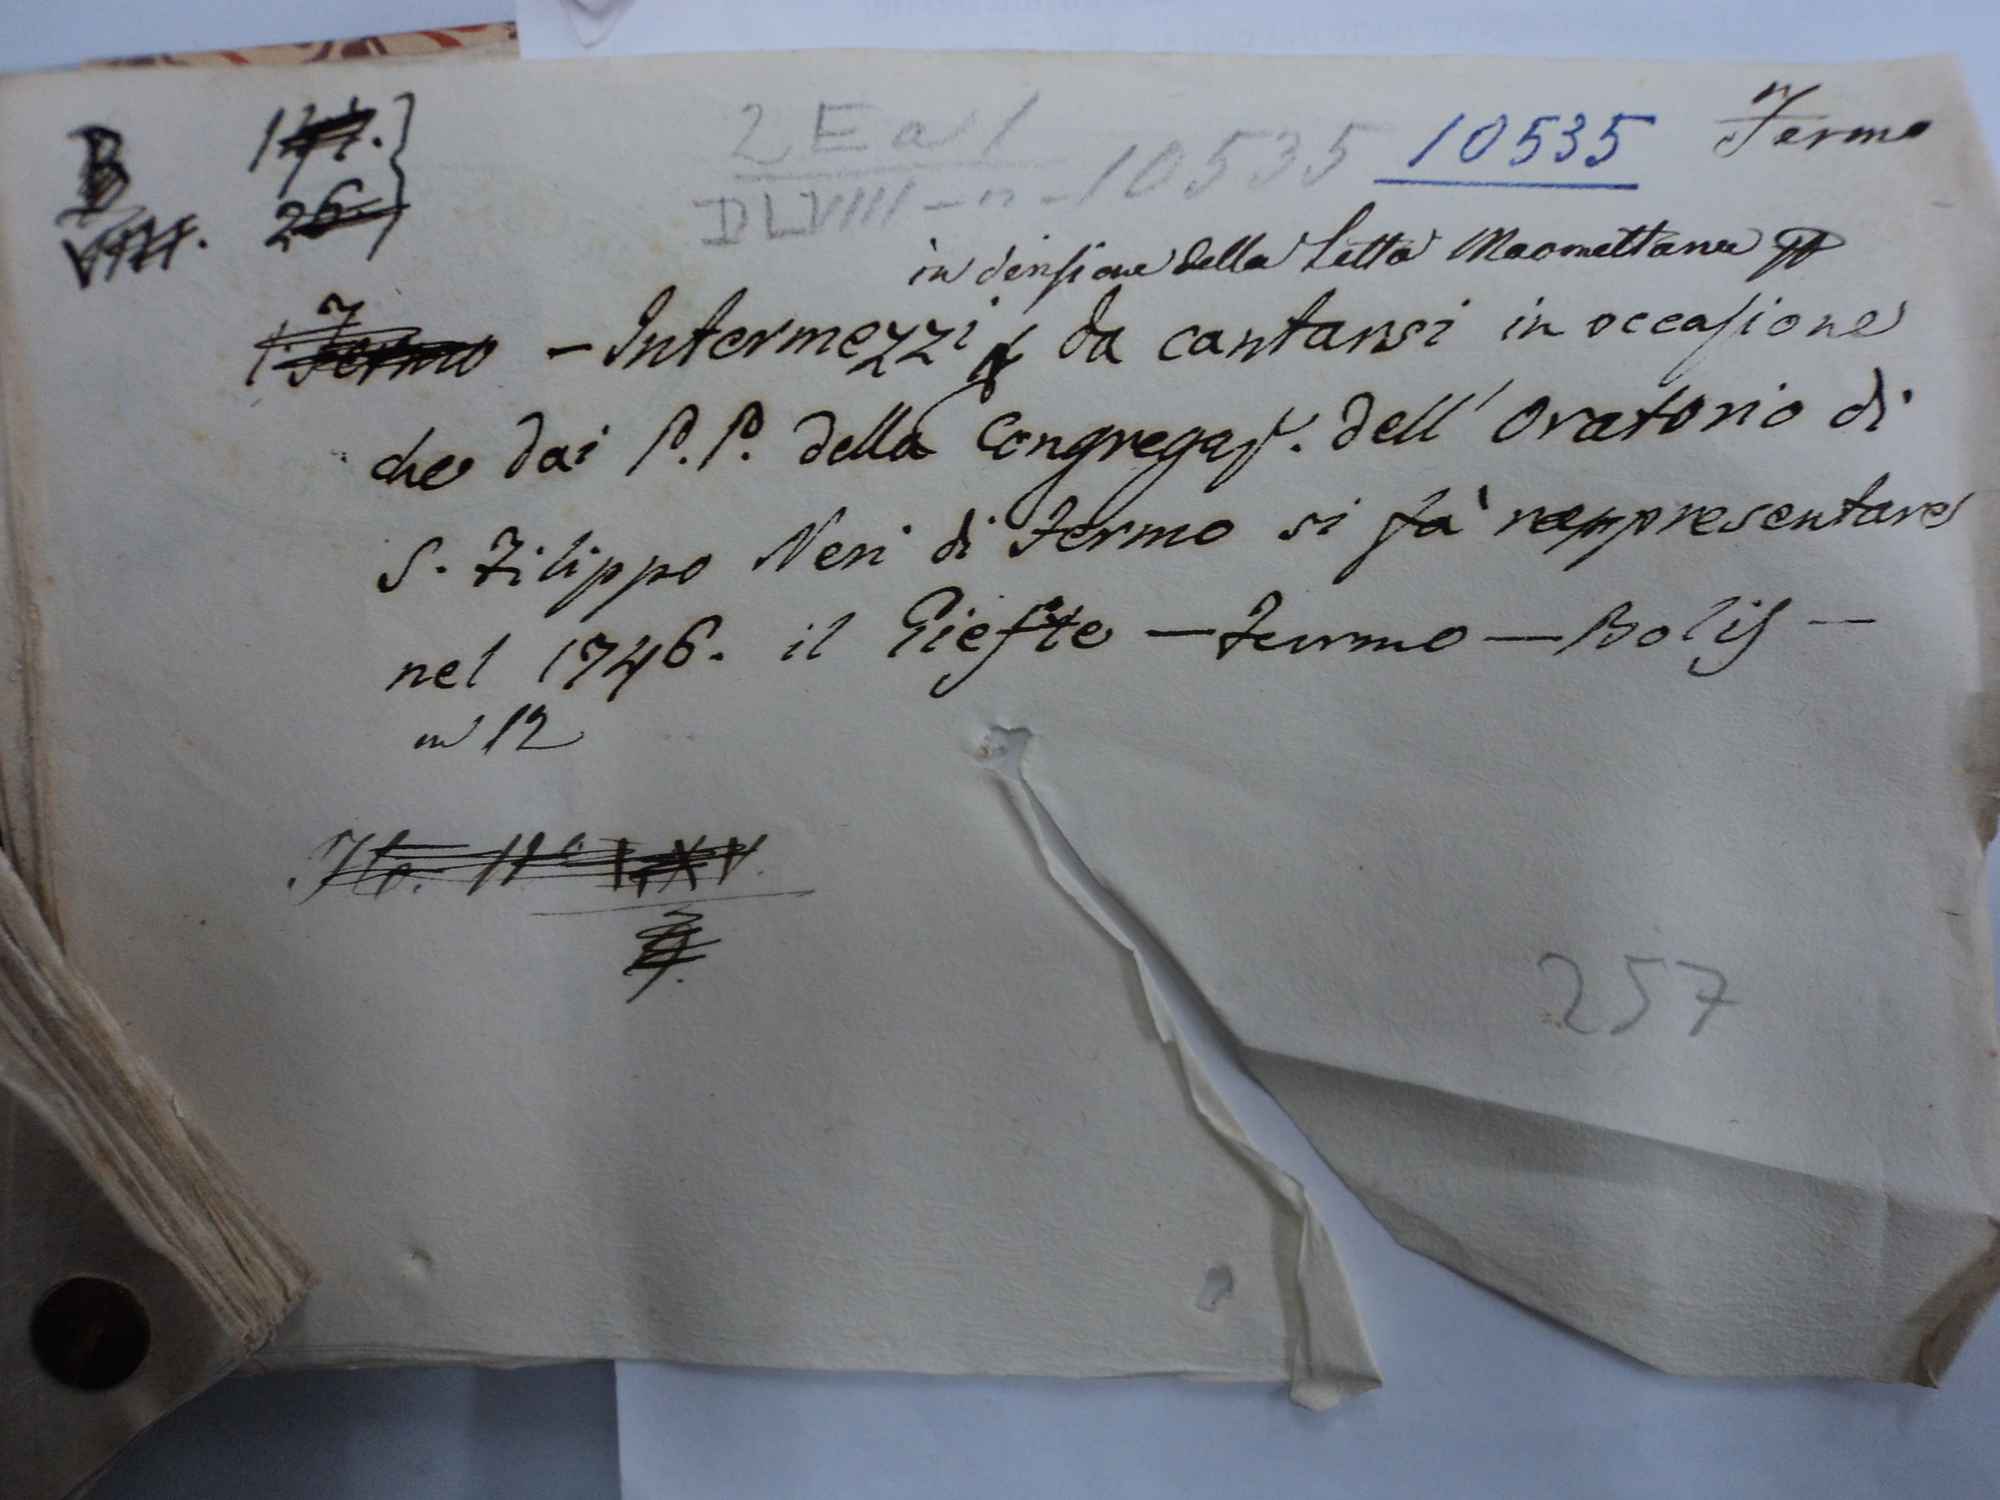 B
26
2 E a 1
DLVIII - n - 10535
10535
Fermo
in derisione della Setta Maomettana
Fermo - Intermezzi da cantarsi in occasione
che dai P.P. della Congregaz. dell' Oratorio di
S. Filippo Neri di Fermo si fà rappresentare
nel 1746. il Giefte - Fermo - Bolis -
in 12
257